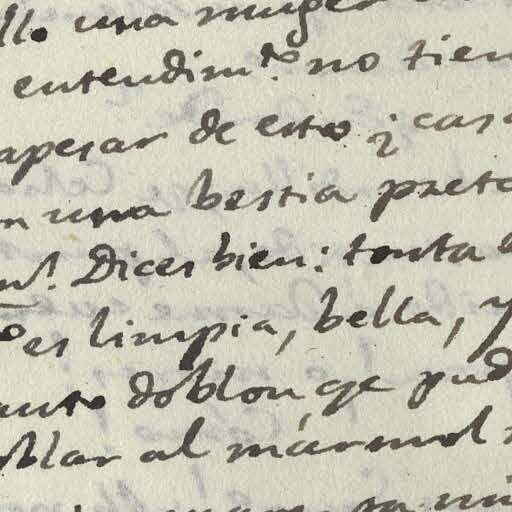 llo una muger
entendim.to no tien
apesar de esto ¿ casa
n una bestia preto
Dices bien: tonta
es limpia, bella, y
doblon qe pud
blar al mármol